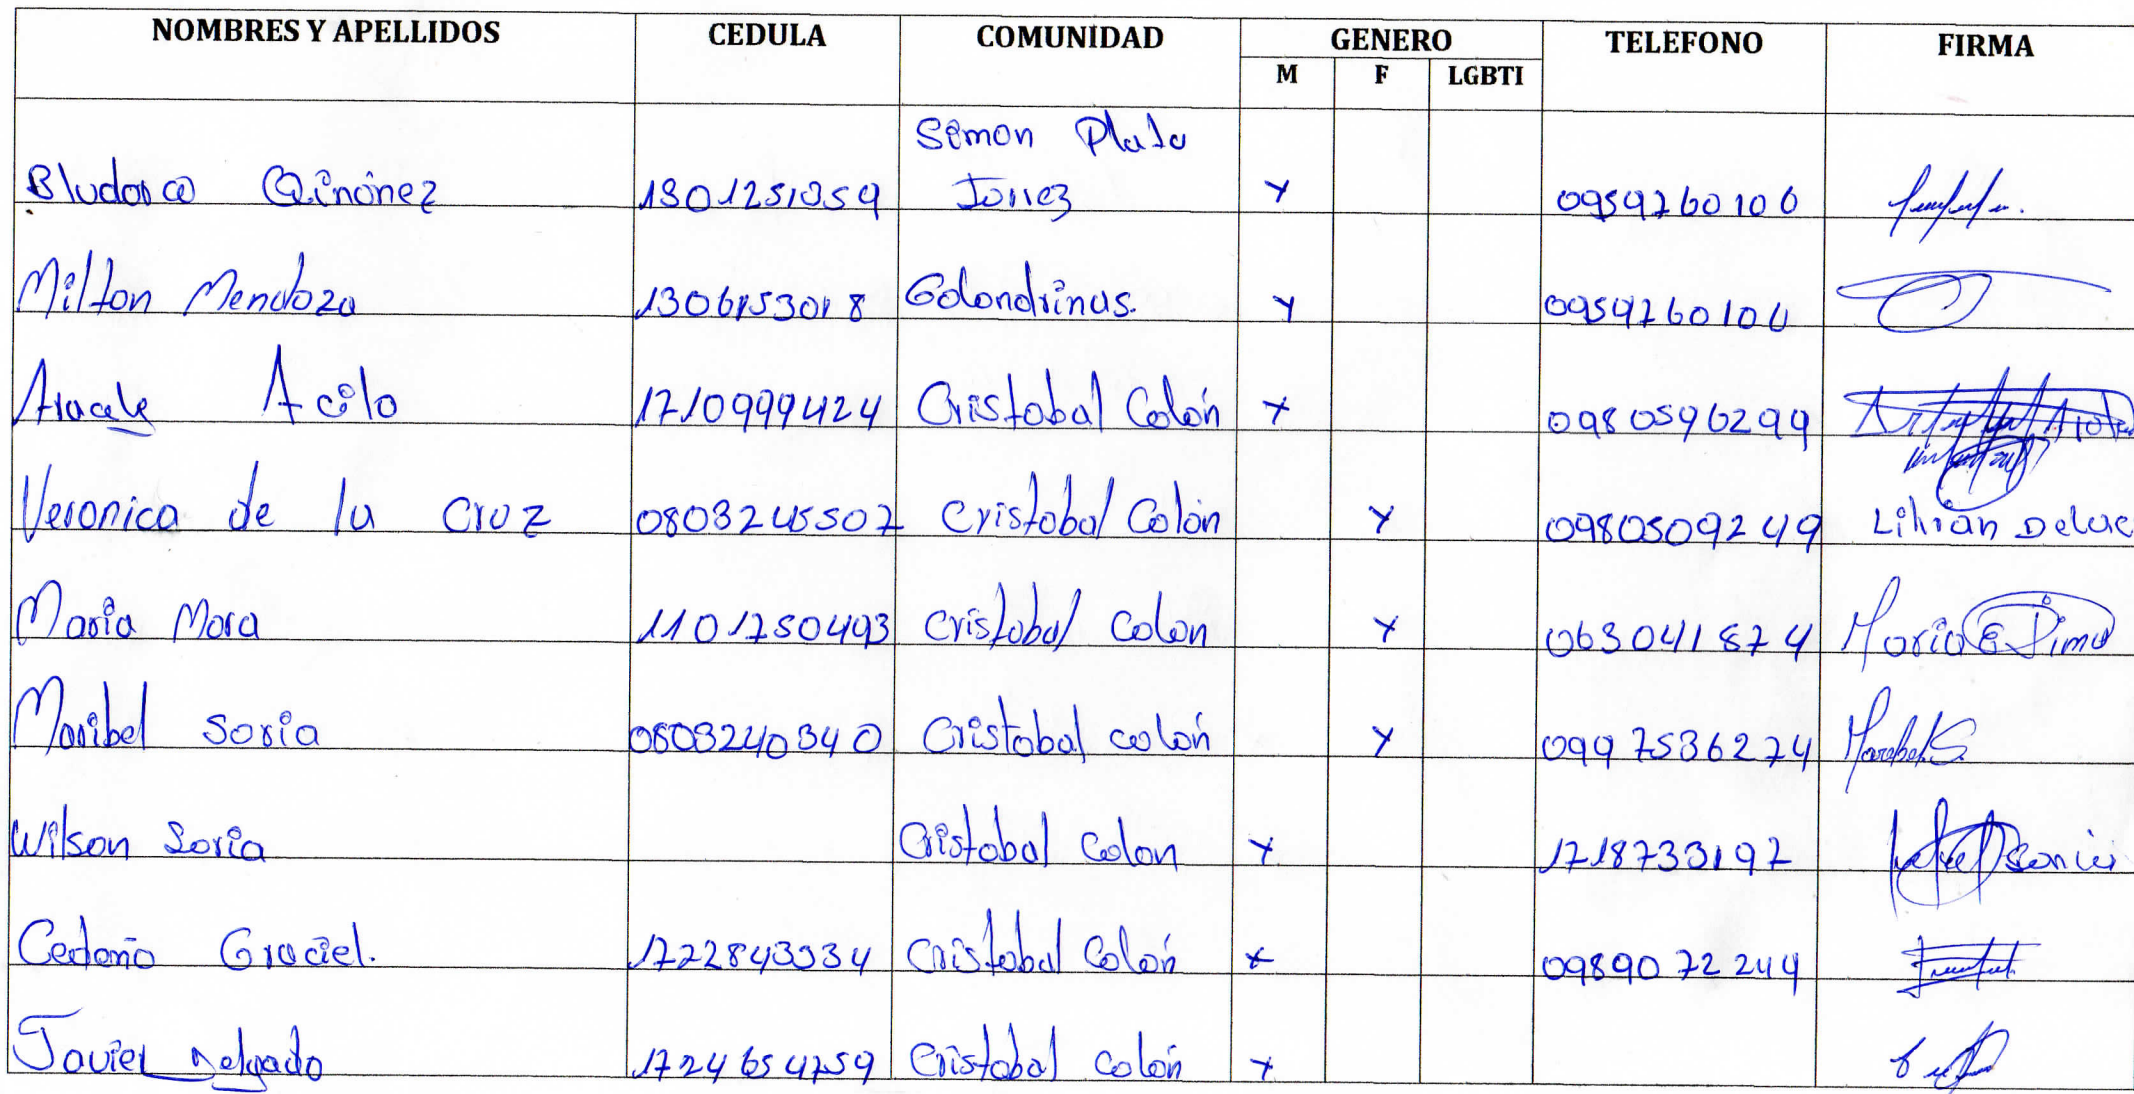 NOMBRES Y APELLIDOS CEDULA COMUNIDAD GENERO TELEFONO FIRMA
M F LGBTI
Simon Plata
Bludorco Qinónez 1301251359 Torrez x 0959760106
Milton Mendoza 1306153018 Golondrinas. x 0959760106
Aracely Acilo 1710999424 Cristobal Colón x 0980596299
Veronica de la Cruz 0803245507 Cristobal Colón x 0980509249 Lilian Delac
Maria Mora 1101750493 Cristobal Colon x 063041874 Maria
Maribel Soria 0803240340 Cristobal colón x 0997536274 Maribel S.
Wilson Soria Cristobal Colon x 1718733197
Cedeño Graciel. 1722843334 Cristobal Colón x 0989072244
Javier Delgado 1724654759 Cristobal Colón x